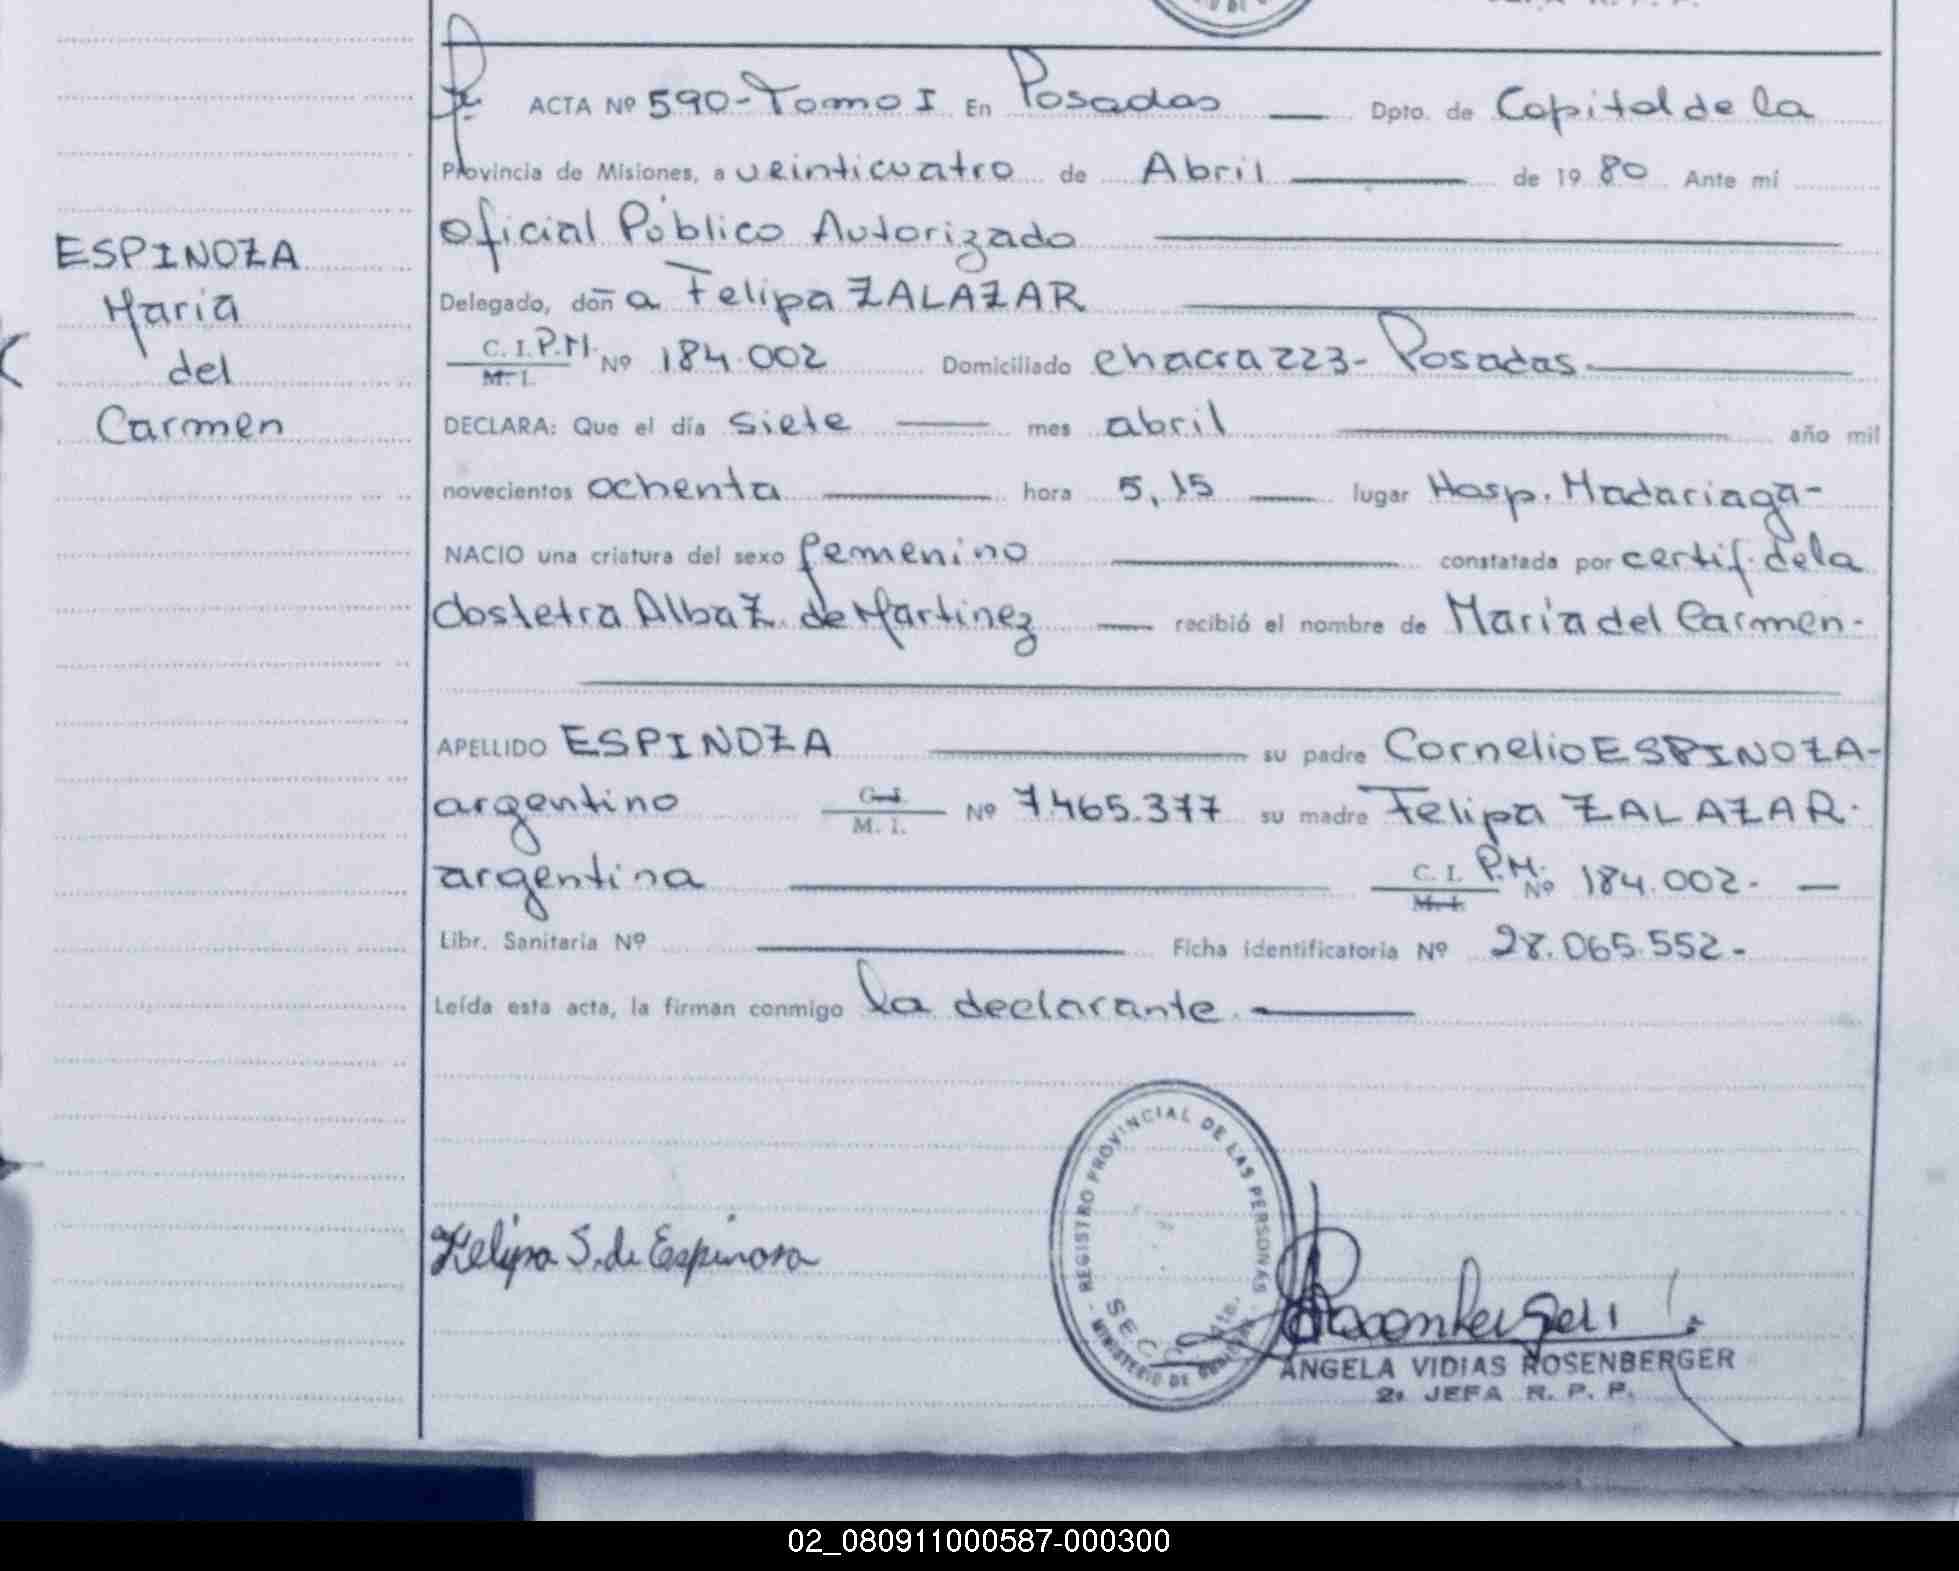 ACTA Nº 590-Tomo I En Posadas Dpto. de Capital de la
Provincia de Misiones, a veinticuatro de Abril de 1980 Ante mí
Oficial Público Autorizado
Delegado, doña Felipa ZALAZAR
C. I. P.M. Nº 184.002 Domiciliado chacra 223- Posadas
M. I.
DECLARA: Que el día siete mes abril año mil
novecientos ochenta hora 5,15 lugar Hosp. Madariaga-
NACIO una criatura del sexo femenino constatada por certif. de la
Obstetra Alba Z. de Martinez recibió el nombre de María del Carmen-
APELLIDO ESPINOZA su padre Cornelio ESPINOZA-
argentino C. I. Nº 7.465.377 su madre Felipa ZALAZAR.
M. I.
argentina C. I. P.M. Nº 184.002.-
M. I.
Libr. Sanitaria Nº Ficha identificatoria Nº 28.065.552-
Leída esta acta, la firman conmigo la declarante.
ESPINOZA
Maria
del
Carmen
Felipa S. de Espinosa
REGISTRO PROVINCIAL DE LAS PERSONAS
MINISTERIO DE
ANGELA VIDIAS ROSENBERGER
2ª JEFA R. P. P.
02_080911000587-000300